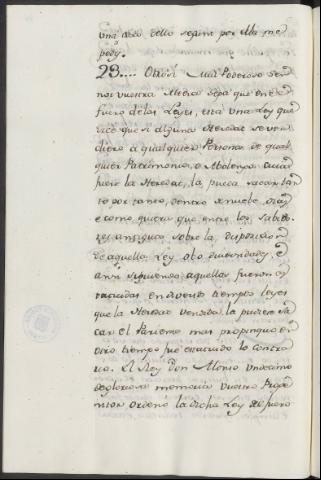 una cosa dello segun por ella me
pedy.
23.... Otrosi Mui Poderoso Señor
nos vuestra Merced sepa que en el
fuero de las Leyes, está una Ley que
dice que si alguna Heredad se vendiere
a qualquier Persona de qualquier
Patrimonio, o Abolengo cuia
fuere la Heredad, la pueda sacar tanto
por tanto, dentro nuebe dias,
e como quiera que entre los Sabidores
antiguos sobre la disposicion
de aquella Ley obo diversidades, é
ansi siguiendo aquellas fueron es
tatuidas en diversos tiempos leyes
que la Heredad vendida la pudiere sa
car el Pariente mas propinquo en
otro tiempo fue estatuido lo contra
rio. El Rey Don Alonso Undecimo
de gloriosa memoria vuestro Proge
nitor ordenó la dicha Ley del fuero